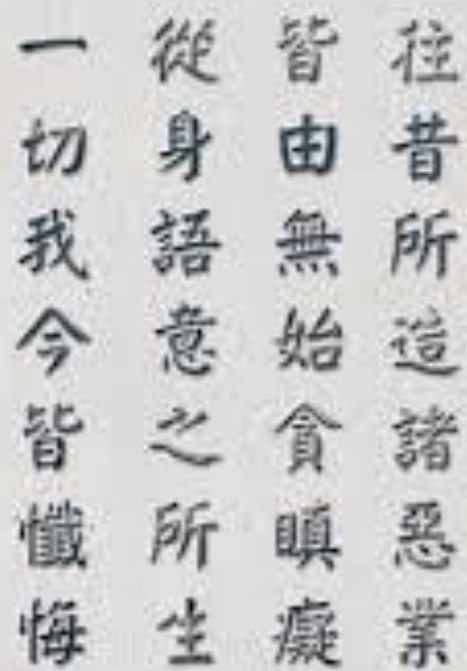 往昔所造諸惡業
皆由無始貪瞋癡
從身語意之所生
一切我今皆懺悔